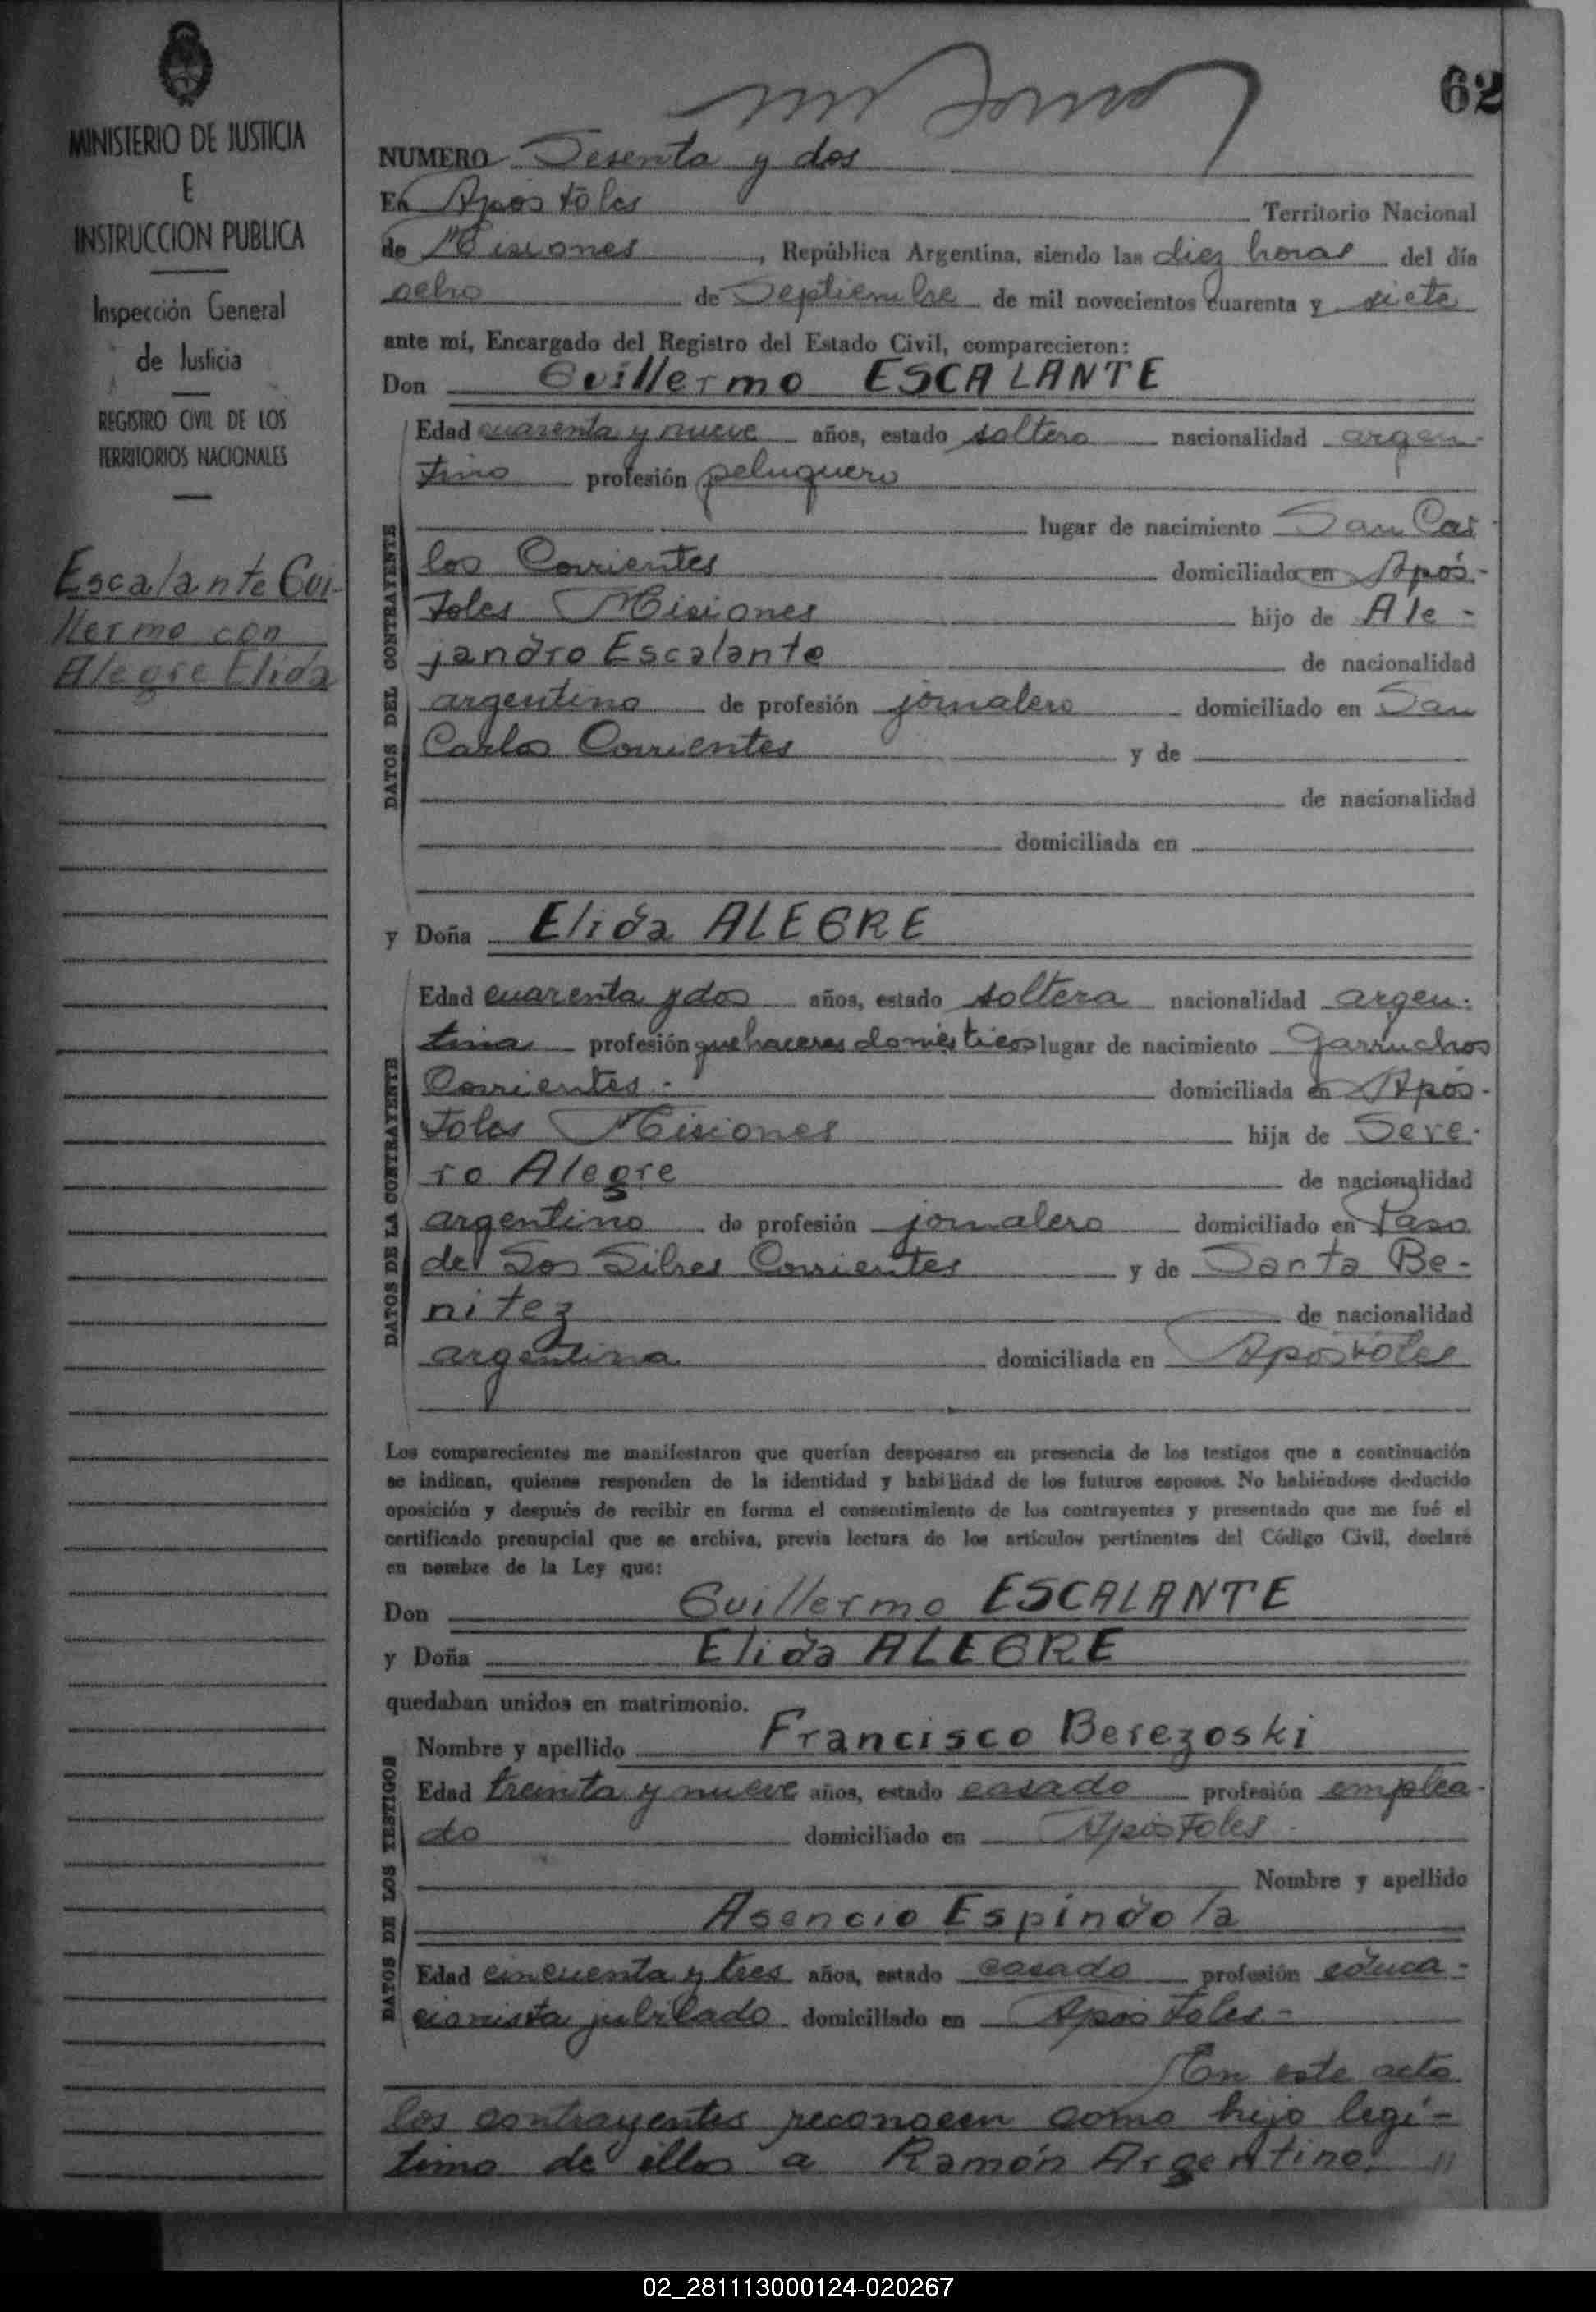 MINISTERIO DE JUSTICIA
E
INSTRUCCION PUBLICA
Inspección General
de Justicia
REGISTRO CIVIL DE LOS
TERRITORIOS NACIONALES
Escalante Gui-
llermo con
Alegre Elida
62
NUMERO Sesenta y dos
En Apóstoles Territorio Nacional
de Misiones, República Argentina, siendo las diez horas del día
ocho de Septiembre de mil novecientos cuarenta y siete
ante mí, Encargado del Registro del Estado Civil, comparecieron:
Don Guillermo ESCALANTE
DATOS DEL CONTRAYENTE
Edad cuarenta y nueve años, estado soltero nacionalidad argen-
tino profesión peluquero
lugar de nacimiento San Car-
los Corrientes domiciliado en Após-
toles Misiones hijo de Ale-
jandro Escalante de nacionalidad
argentino de profesión jornalero domiciliado en San
Carlos Corrientes y de
de nacionalidad
domiciliada en
y Doña Elida ALEGRE
DATOS DE LA CONTRAYENTE
Edad cuarenta y dos años, estado soltera nacionalidad argen-
tina profesión quehaceres domésticos lugar de nacimiento Garruchos
Corrientes.- domiciliada en Após-
toles Misiones hija de Seve-
ro Alegre de nacionalidad
argentino de profesión jornalero domiciliado en Paso
de Los Libres Corrientes y de Santa Be-
nitez de nacionalidad
argentina domiciliada en Apóstoles
Los comparecientes me manifestaron que querían desposarse en presencia de los testigos que a continuación
se indican, quienes responden de la identidad y habilidad de los futuros esposos. No habiéndose deducido
oposición y después de recibir en forma el consentimiento de los contrayentes y presentado que me fué el
certificado prenupcial que se archiva, previa lectura de los artículos pertinentes del Código Civil, declaré
en nombre de la Ley que:
Don Guillermo ESCALANTE
y Doña Elida ALEGRE
quedaban unidos en matrimonio.
DATOS DE LOS TESTIGOS
Nombre y apellido Francisco Berezoski
Edad treinta y nueve años, estado casado profesión emplea-
do domiciliado en Apóstoles.
Nombre y apellido
Asencio Espíndola
Edad cincuenta y tres años, estado casado profesión educa-
cionista jubilado domiciliado en Apóstoles-
En este acto
los contrayentes reconocen como hijo legí-
timo de ellos a Ramón Argentino. "
02_281113000124-020267